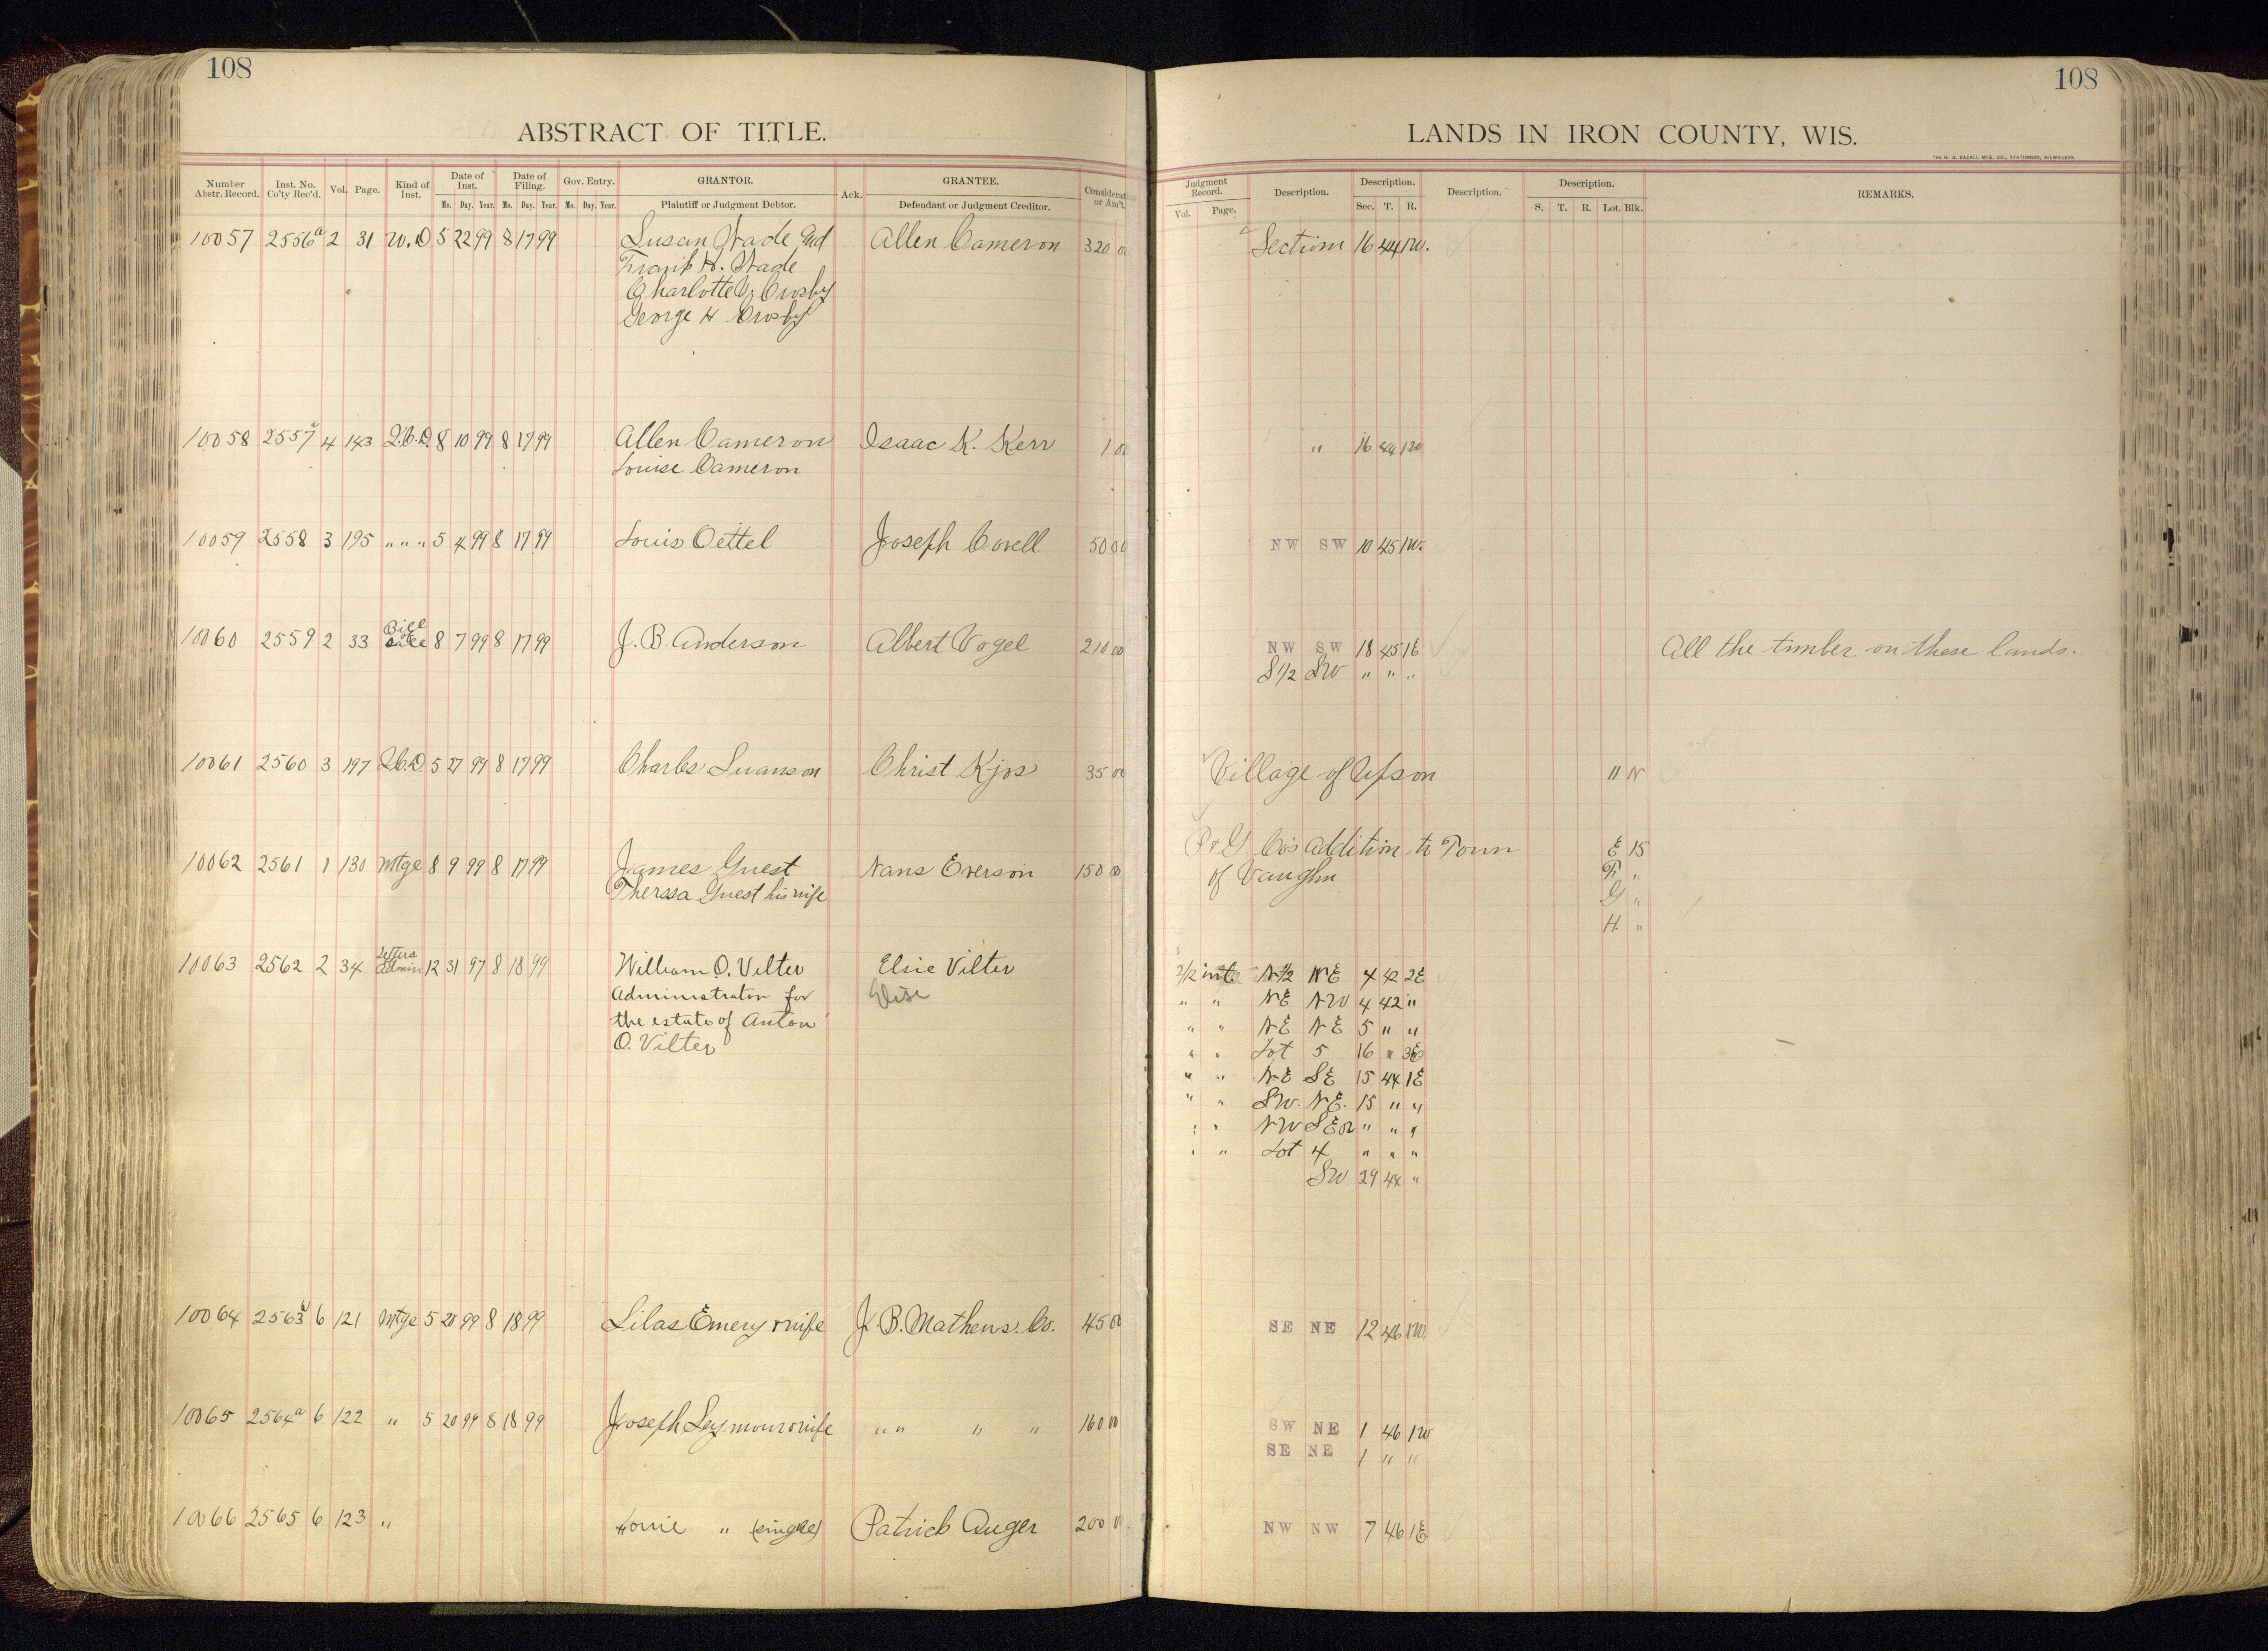 108
ABSTRACT OF TITLE.
Number Abstr. Record. Inst. No. Co'ty Rec'd. Vol. Page. Kind of Inst. Date of Inst. Mo. Day. Year. Date of Filing. Mo. Day. Year. Gov. Entry. Mo. Day. Year. GRANTOR. Plaintiff or Judgment Debtor. Ack. GRANTEE. Defendant or Judgment Creditor. Considerat or Am't.
10057 2556a 2 31 W.D 5 22 99 8 17 99 Susan Wade and Allen Cameron 320 00
Frank H. Wade
Charlotte Crosby
George H Crosby
10058 2557a 4 143 Q.C.D. 8 10 99 8 17 99 Allen Cameron Isaac K. Kerr 1 00
Louise Cameron
10059 2558 3 195 " " " 5 4 99 8 17 99 Louis Oettel Joseph Corell 50 00
10060 2559 2 33 Bill of sale 8 7 99 8 17 99 J. B. Anderson Albert Vogel 210 00
10061 2560 3 197 Q.C.D. 5 27 99 8 17 99 Charles Swanson Christ Kjos 35 00
10062 2561 1 130 Mtge 8 9 99 8 17 99 James Guest Hans Everson 150 00
Therssa Guest his wife
10063 2562 2 34 Letters Admin 12 31 97 8 18 99 William O. Vilter Elsie Vilter
Administrator for Elise
the estate of Anton
O. Vilter
10064 2563a 6 121 Mtge 5 20 99 8 18 99 Silas Emery & wife J. B. Mathews. Co. 45 00
10065 2564a 6 122 " 5 20 99 8 18 99 Joseph Seymour & wife " " " " 160 00
10066 2565 6 123 " Louie " (single) Patrick Auger 200 00
108
LANDS IN IRON COUNTY, WIS.
THE H. G. RAZALL MFG. CO., STATIONERS, MILWAUKEE.
Judgment Record. Vol. Page. Description. Description. Sec. T. R. Description. Description. S. T. R. Lot. Blk. REMARKS.
Section 16 44 1W.
" 16 44 1W
NW SW 10 45 1W.
NW SW 18 45 1E All the timber on these lands.
S1/2 SW " " "
Village of Upson 11 N
P. & G. Co's Addition to Town E 15
of Vaughn F "
G "
H. "
1/2 int. N1/2 NE 4 42 2E
" " NE NW 4 42 "
" " NE NE 5 " "
" " Lot 5 16 " 3E
" " NE SE 15 44 1E
" " SW. NE. 15 " "
" " NW SE " " "
" " Lot 4 " " "
SW 29 44 "
SE NE 12 46 1W.
SW NE 1 46 1W
SE NE 1 " "
NW NW 7 46 1E